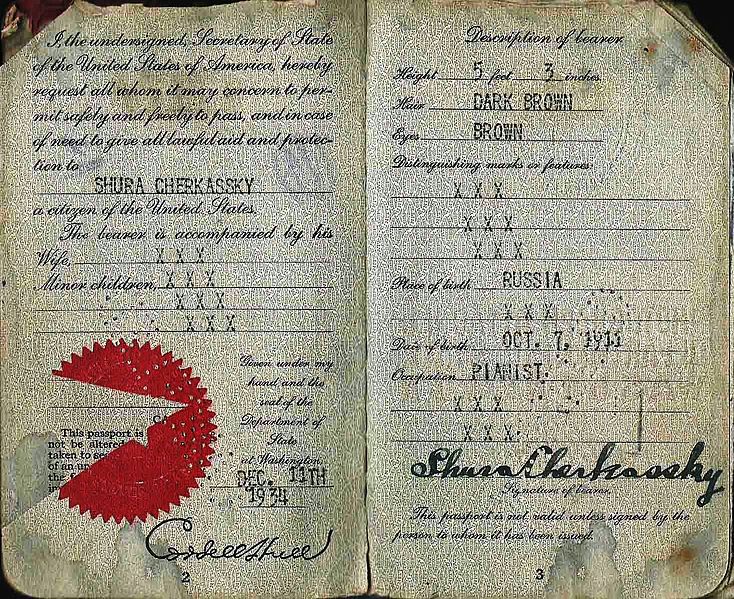 I, the undersigned, Secretary of State
of the United States of America, hereby
request all whom it may concern to per-
mit safely and freely to pass, and in case
of need to give all lawful aid and protec-
tion to
SHURA CHERKASSKY
a citizen of the United States.
The bearer is accompanied by his
Wife, X X X
Minor children, X X X
X X X
X X X
Given under my
hand and the
seal of the
Department of
State
at Washington,
DEC. 11TH
1934
This passport is
not be altered
taken to
of an
the
Cordell Hull
2
Description of bearer
Height 5 feet 3 inches.
Hair DARK BROWN
Eyes BROWN
Distinguishing marks or features:
X X X
X X X
X X X
Place of birth RUSSIA
X X X
Date of birth OCT. 7, 1911
Occupation PIANIST.
X X X
X X X
Shura Cherkassky
Signature of bearer.
This passport is not valid unless signed by the
person to whom it has been issued.
3